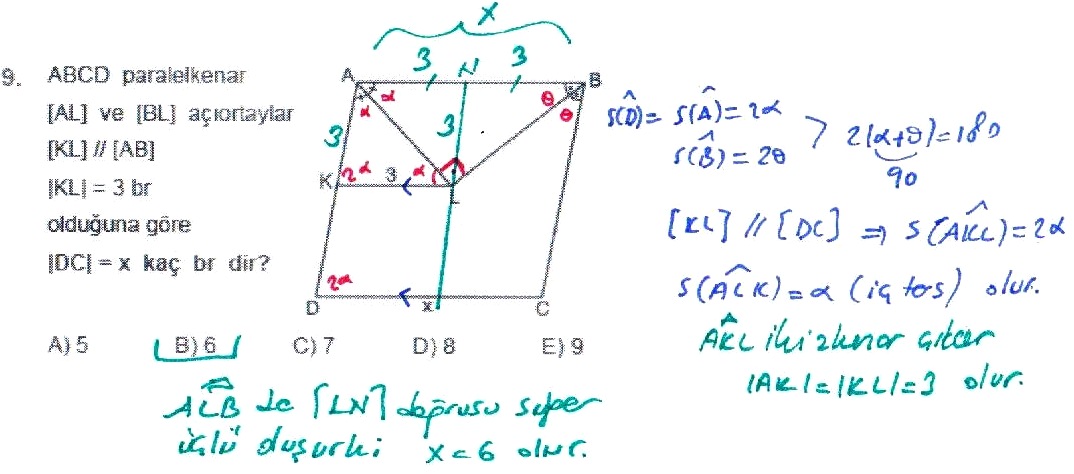 9. ABCD paralelkenar
[AL] ve [BL] açıortaylar
[KL] // [AB]
|KL| = 3 br
olduğuna göre
|DC| = x kaç br dir?
A) 5 B) 6 C) 7 D) 8 E) 9
x
3 3
A N B
α θ
α θ
3 3
K 2α 3 α L
2α
D x C
s(D̂) = s(Â) = 2α
s(B̂) = 2θ > 2(α+θ) = 180
90
[KL] // [DC] ⇒ s(AK̂L) = 2α
s(AL̂K) = α (iç ters) olur.
AKL ikizkenar çıkar
|AK| = |KL| = 3 olur.
AL̂B de [LN] doğrusu süper
üçlü düşürki x = 6 olur.